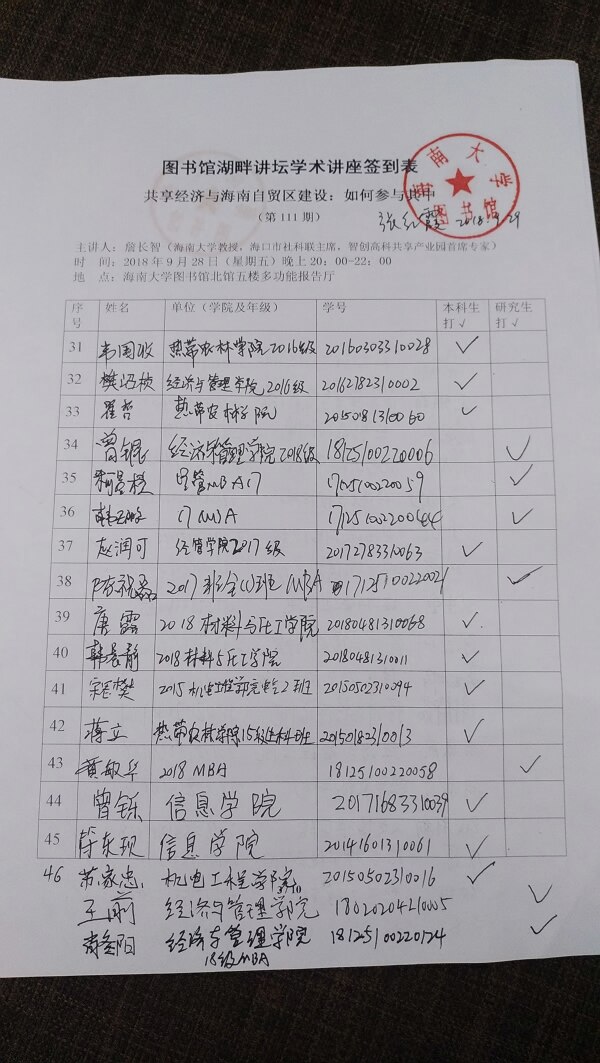 图书馆湖畔讲坛学术讲座签到表
共享经济与海南自贸区建设：如何参与其中
（第 111 期）
海南大学
图书馆
张红霞 2018.9.29
主讲人：詹长智（海南大学教授，海口市社科联主席，智创高科共享产业园首席专家）
时 间：2018 年 9 月 28 日（星期五）晚上 20：00-22：00
地 点：海南大学图书馆北馆五楼多功能报告厅
序号 姓名 单位（学院及年级） 学号 本科生打√ 研究生打√
31 韦国收 热带农林学院2016级 20160303310028 √
32 樊 经济与管理学院2016级 20162782310002 √
33 翟哲 热带农林学院 20150813100060 √
34 曾锟 经济与管理学院2018级 18125100220006 √
35 经管MBA17 17125100220059 √
36 17 MBA √
37 赵润可 经管学院2017级 20172783310063 √
38 陈 2017 MBA 17125100220021 √
39 唐露 2018材料与化工学院 20180481310068 √
40 韩晨静 2018材料与化工学院 20180481310011 √
41 樊 2015机电工程学院电气2班 20150502310094 √
42 蒋立 热带农林学院15级 20150182310013 √
43 黄敏华 2018 MBA 18125100220058 √
44 曾铄 信息学院 20171683310039 √
45 信息学院 20141601310061 √
46 苏家忠 机电工程学院 20150502310016 √
王前 经济与管理学院 18020204210005 √
阳 经济与管理学院 18125100220124 √
18级MBA